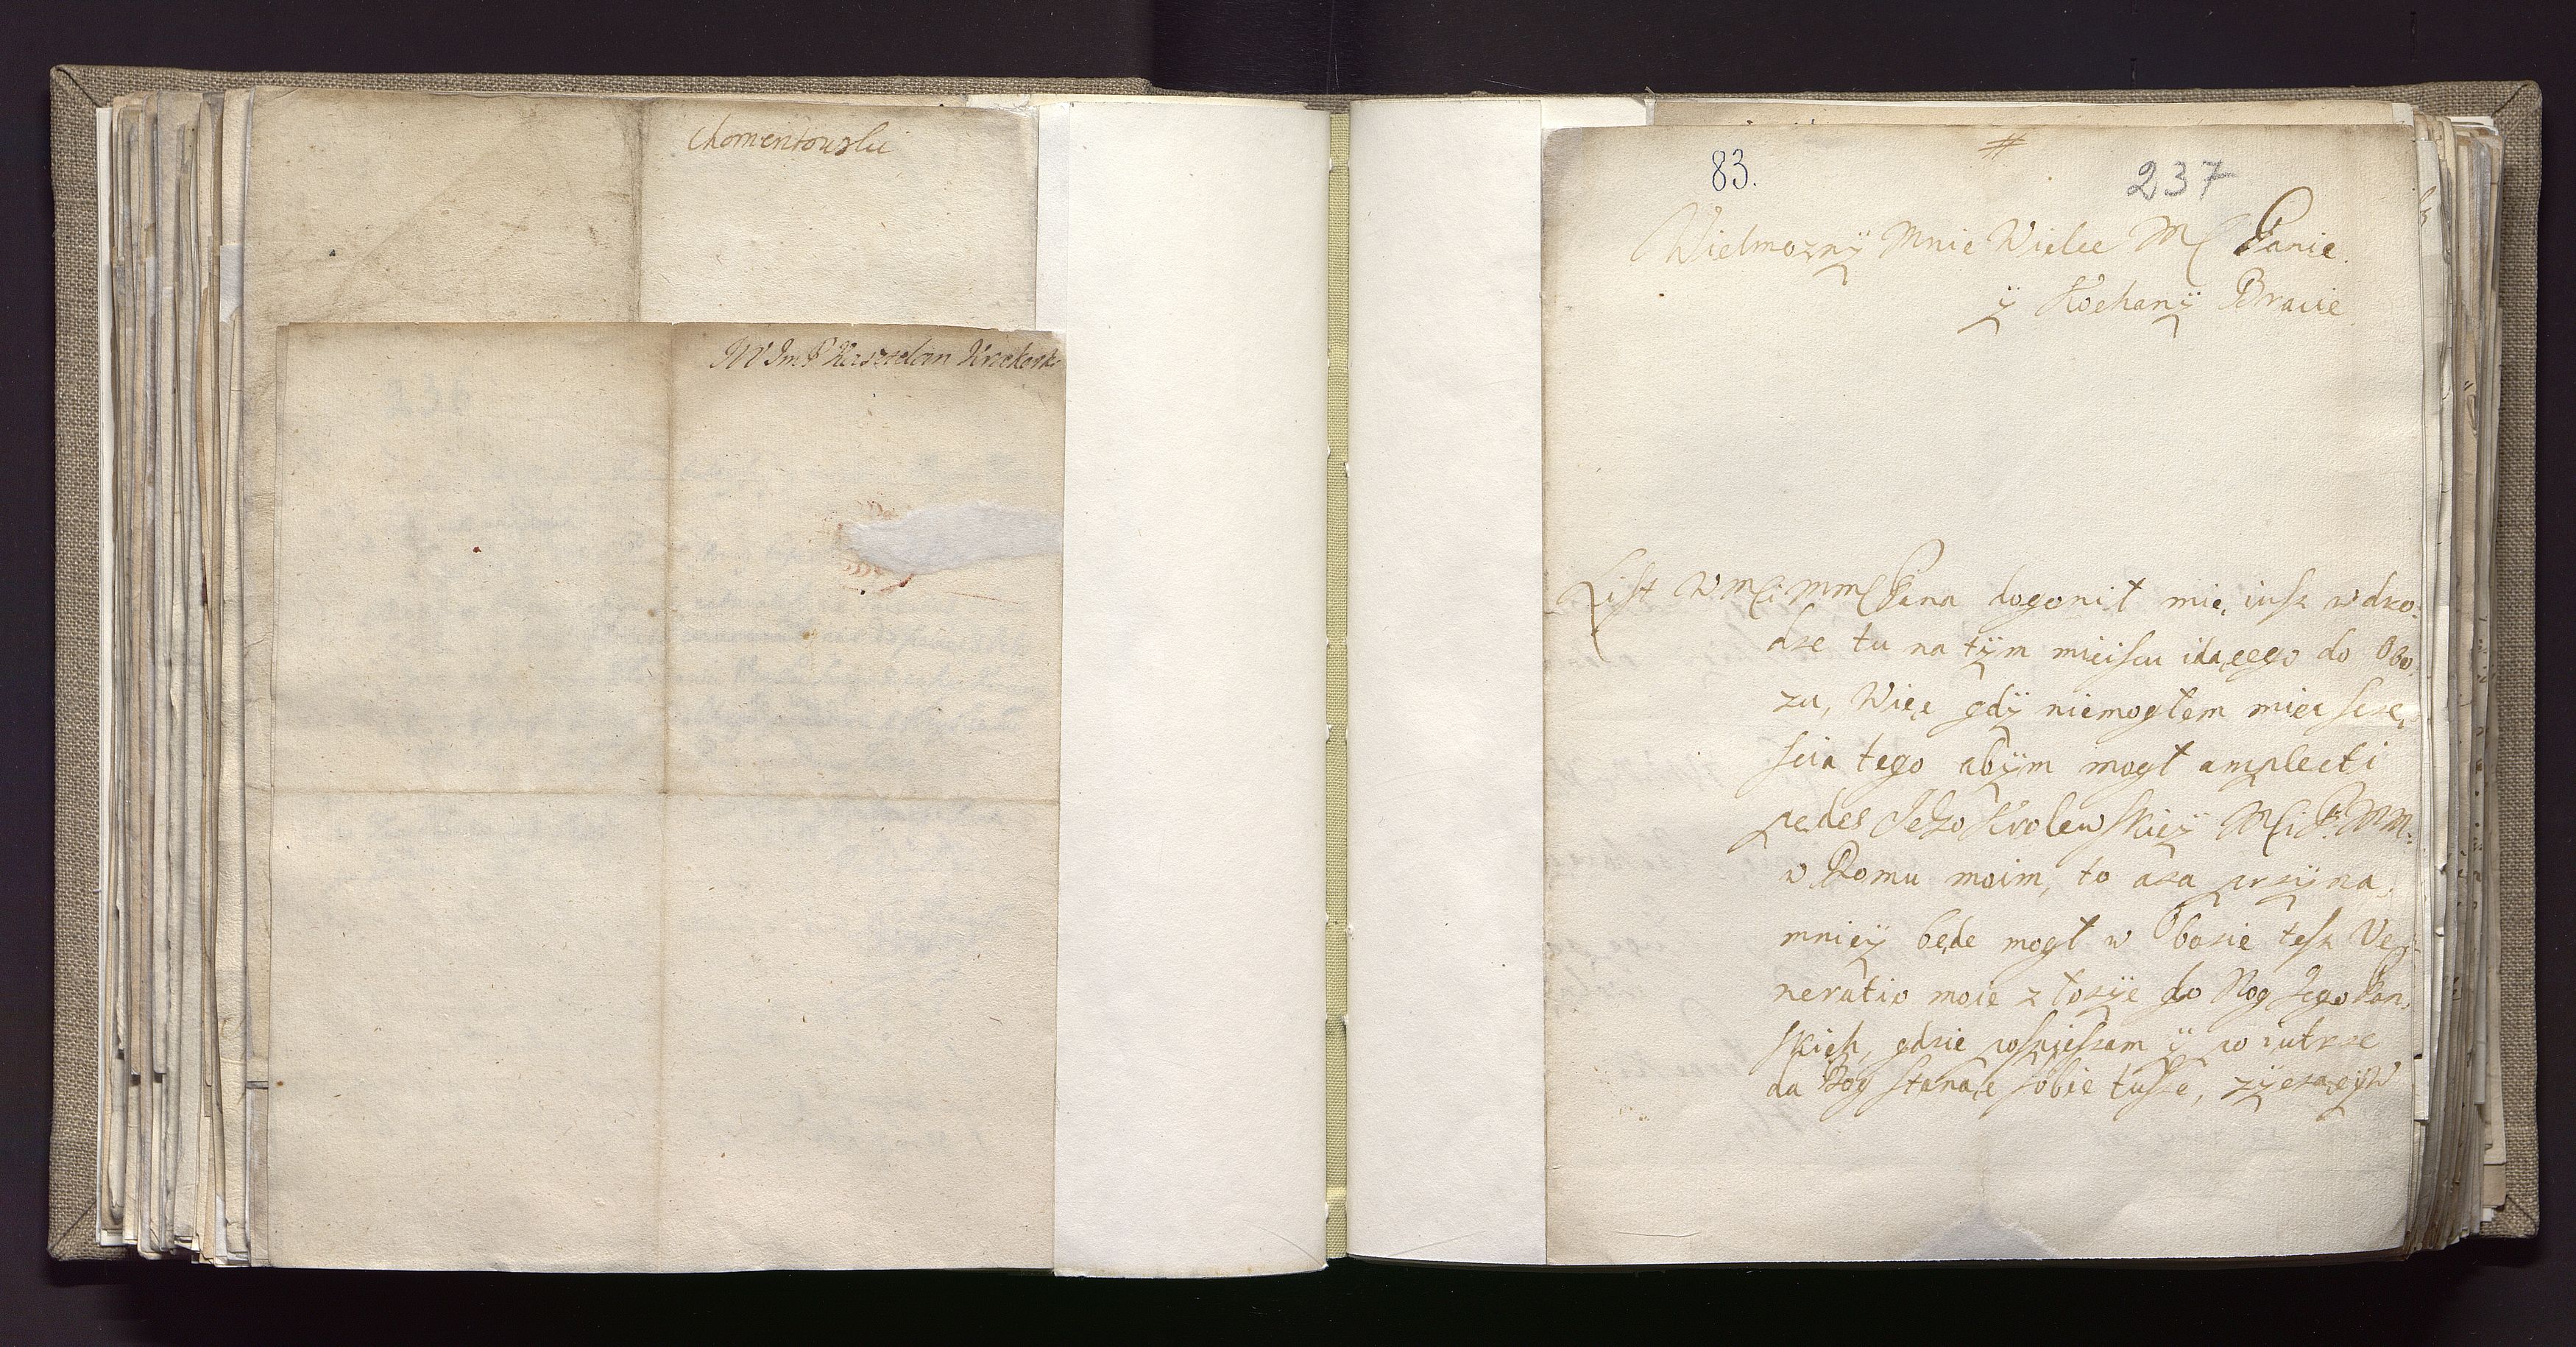 Chomentowski
W Jm P Kasztelan Krakowski
83.
#
237
Wielmozny Mnie Wielce Mſ Panie
ÿ Kochanÿ Bracie
List WMſci MMſ Pana dogonił mię iusz w dro:
dze tu na tÿm mieiscu idącego do Obo:
zu, Więc gdÿ niemogłem miec scze,
scia tego abÿm mogł amplecti
pedes Jeho Krolewskieÿ Mſci P. MM:
w Domu moim, to aza przÿna,
mnieÿ będe mogł w Obozie tesz Ve:
neratio moie złozÿc do Nog Jego Pan,
skich, gdzie pospieszam ÿ po iutrze
da Bog stanąc sobie tusze, zÿcząc W